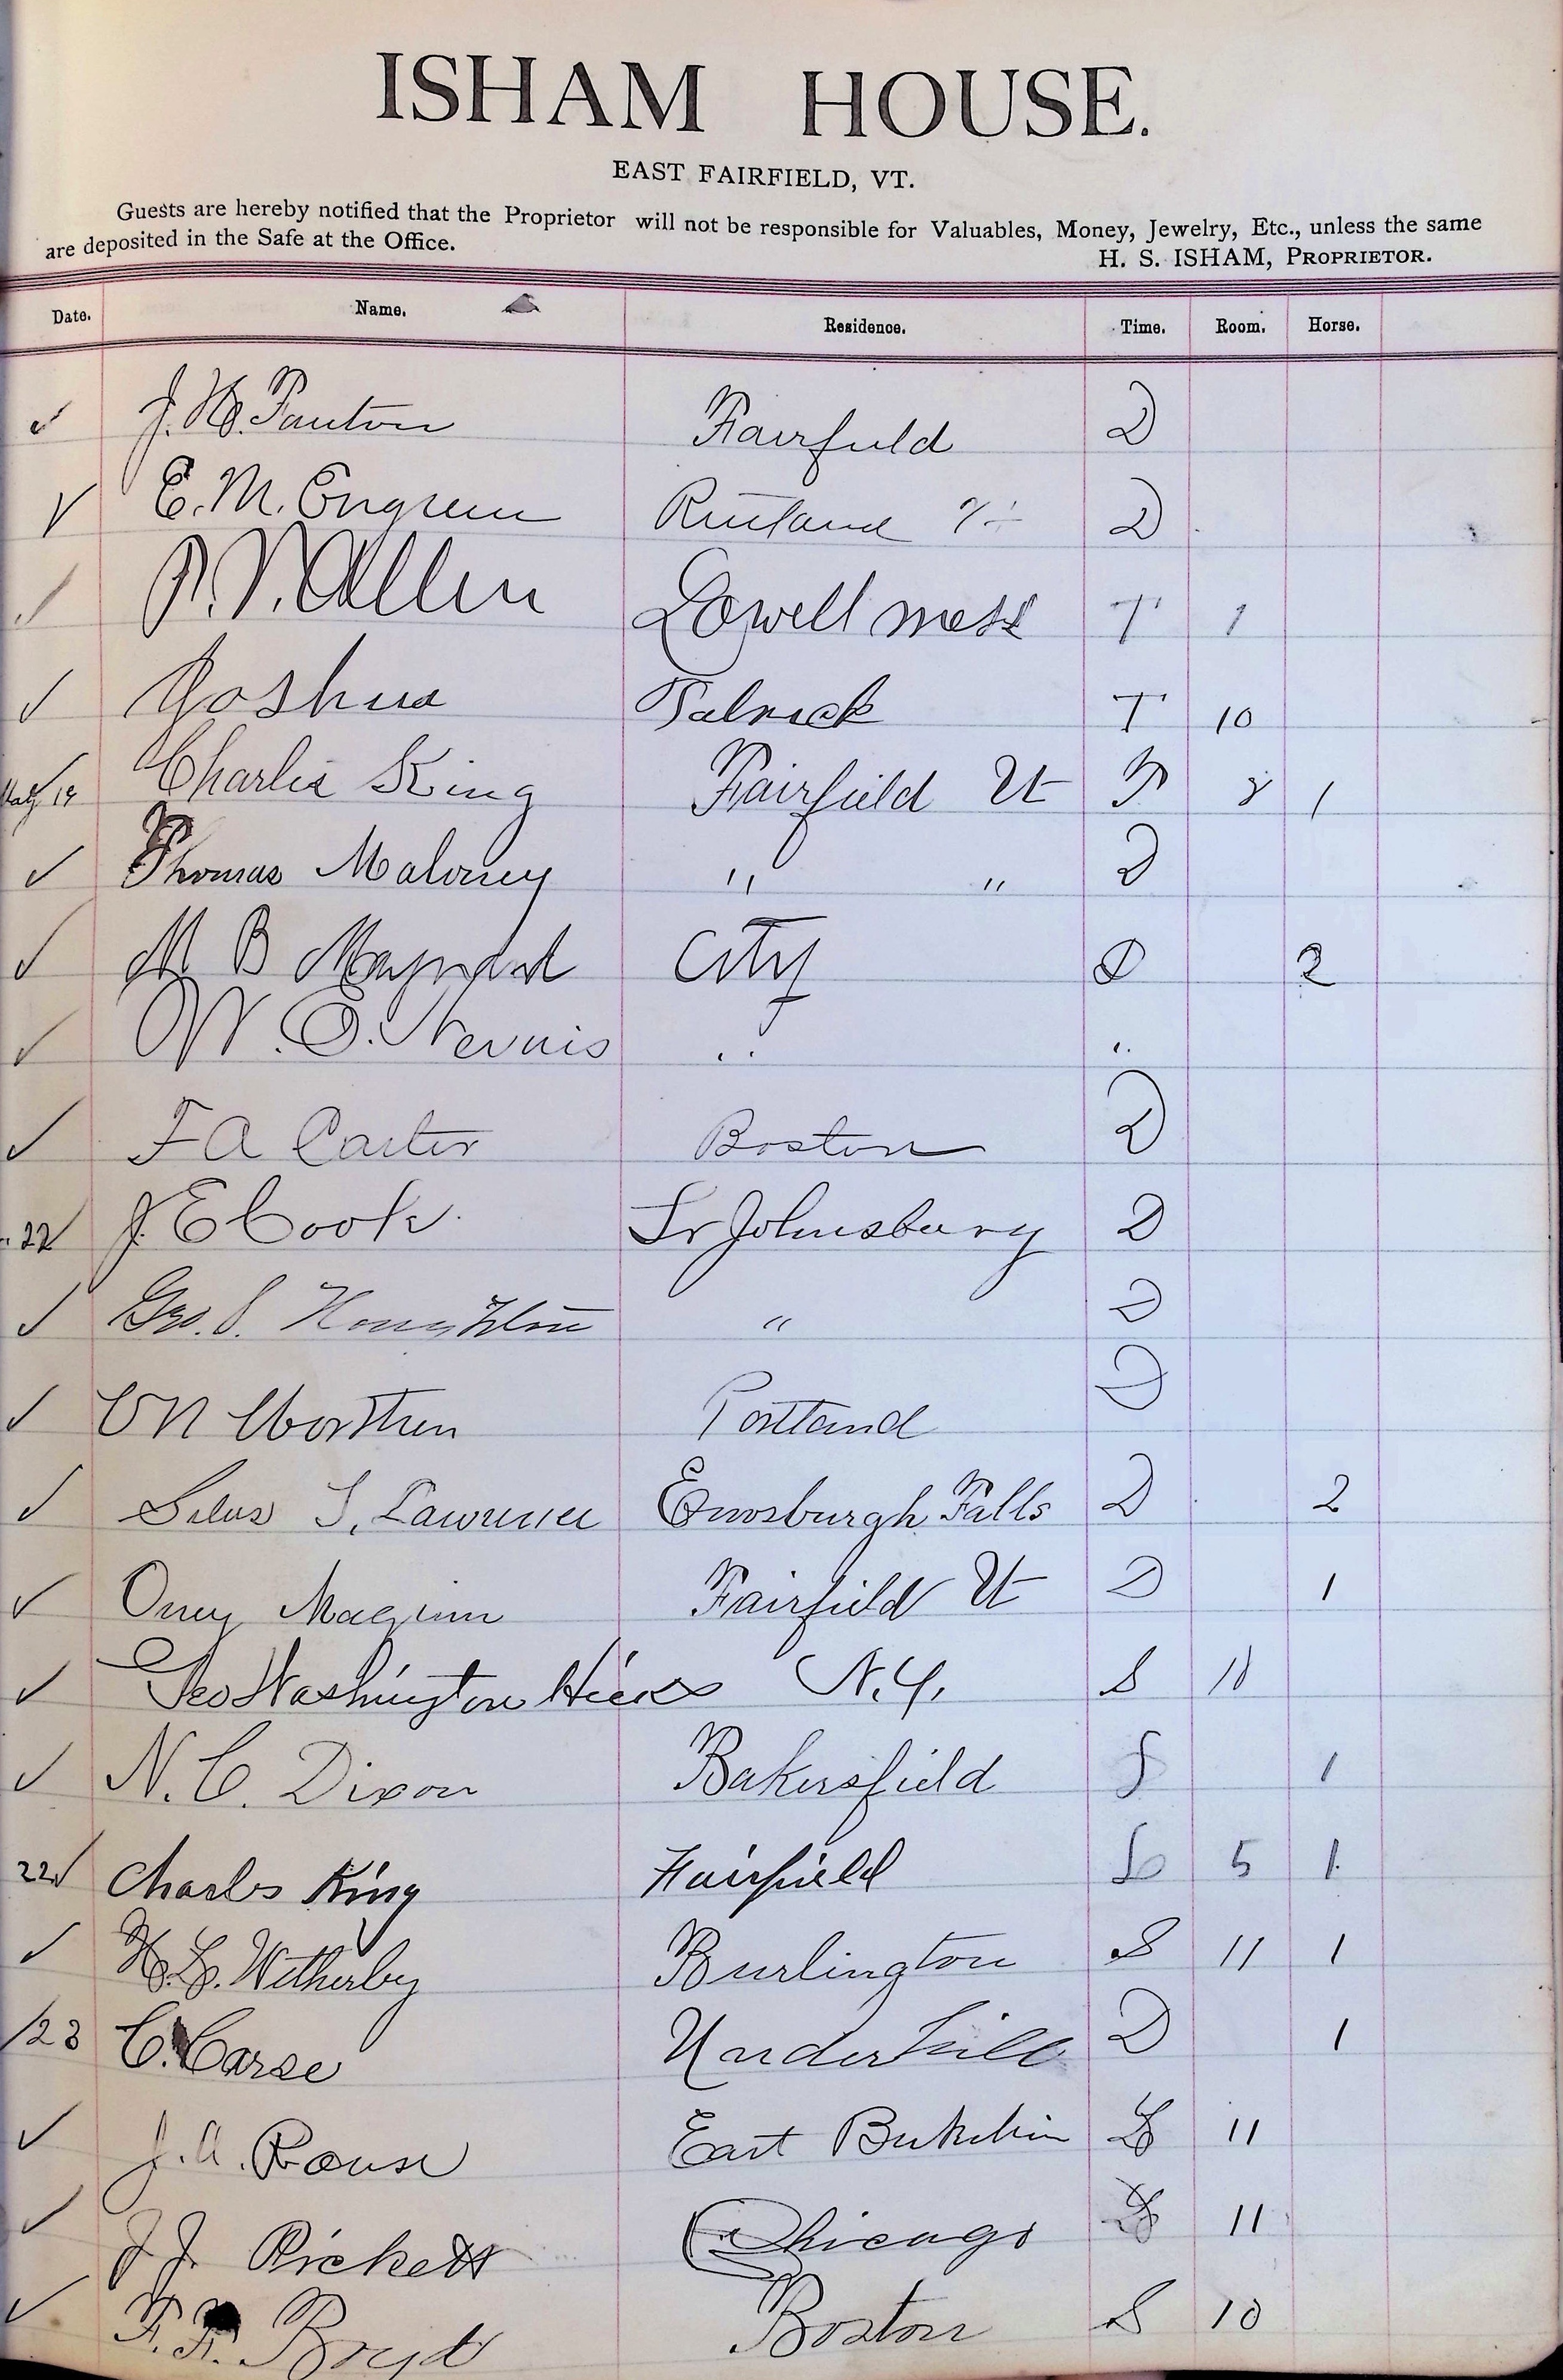 ISHAM HOUSE.
EAST FAIRFIELD, VT.
Guests are hereby notified that the Proprietor will not be responsible for Valuables, Money, Jewelry, Etc., unless the same
are deposited in the Safe at the Office.
H. S. ISHAM, PROPRIETOR.
Date. Name. Residence. Time. Room. Horse.
✓ J. H. Fauton Fairfield D
✓ E. M. Rutland D
✓ Allen Lowell mass T 1
✓ Joshua T 10
19 Charlie King Fairfield Vt 8 1
✓ Thomas Maloney " " D
✓ M B Maynard City D 2
✓ W. " "
✓ F A Carter Boston D
22 J. E Cook St Johnsbury D
✓ Geo. S. Houghton " D
✓ C N Worthen Portland D
✓ Silas S. Lawrence Enosburgh Falls D 2
✓ Oney Maginn Fairfield Vt D 1
✓ Geo Washington Hicks N. Y. S 10
✓ N. C. Dixon Bakersfield S 1
22 ✓ Charls King Fairfield 5 1
✓ H. L. Witherby Burlington S 11 1
/23 C. Carse Underhill D 1
✓ J. A. Rouse East S 11
✓ J J. Pickett Chicago S 11
✓ F. F. Boyd Boston S 10